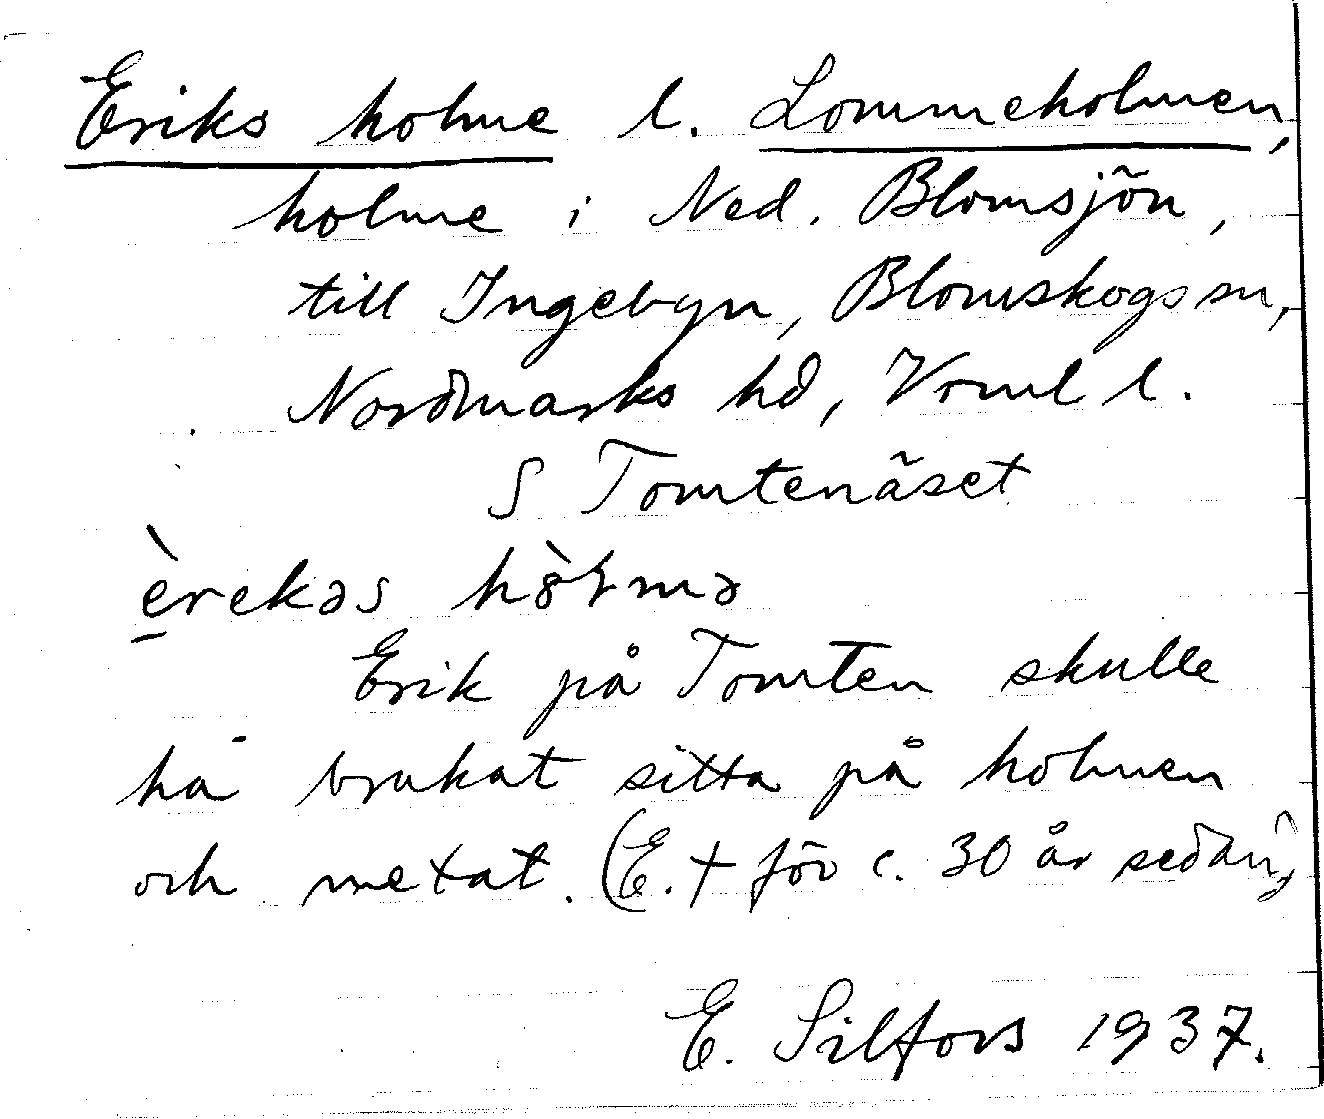 Eriks holme l. Lommeholmen,
holme i Ned. Blomsjön,
till Ingebyn, Blomskogs sn,
Nordmarks hd, Vrml l.
S Tomtenäset
è̱rekəs hò̵ɫmə
Erik på Tomten skulle
ha brukat sitta på holmen
och metat. (E. † för c. 30 år sedan)
E. Silfors 1937.